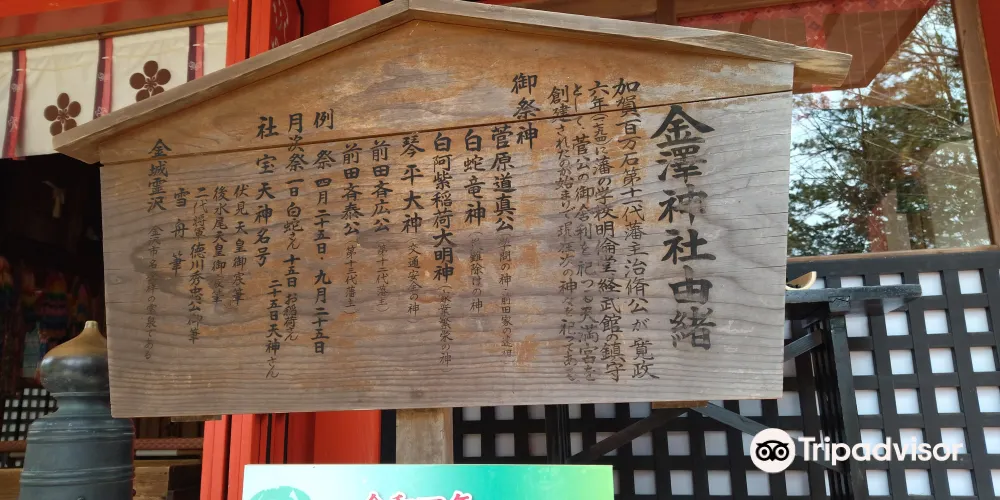 金澤神社由緒
加賀百万石第十一代藩主治脩公が寛政
六年(一七九四)藩の学校明倫堂経武館の鎮守
として菅公の御舎利を祀つる天満宮を
創建されたのが始まりで現在次の神々を祀つてある
御祭神
菅原道真公(学問の神 前田家の
白蛇竜神(災難除けの神)
白阿紫稲荷大明神(家業繁栄の神)
琴平大神(交通安全の神)
前田斉広公(第十二代藩主)
前田斉泰公(第十三代藩主)
例 祭 四月二十五日・九月二十五日
月次祭 一日白蛇さん 十五日お稲荷さん
二十五日天神さん
社 宝 天神名号
伏見天皇御宸筆
後水尾天皇御宸筆
二代将軍徳川秀忠公御筆
雪舟筆
金城霊沢
Tripadvisor